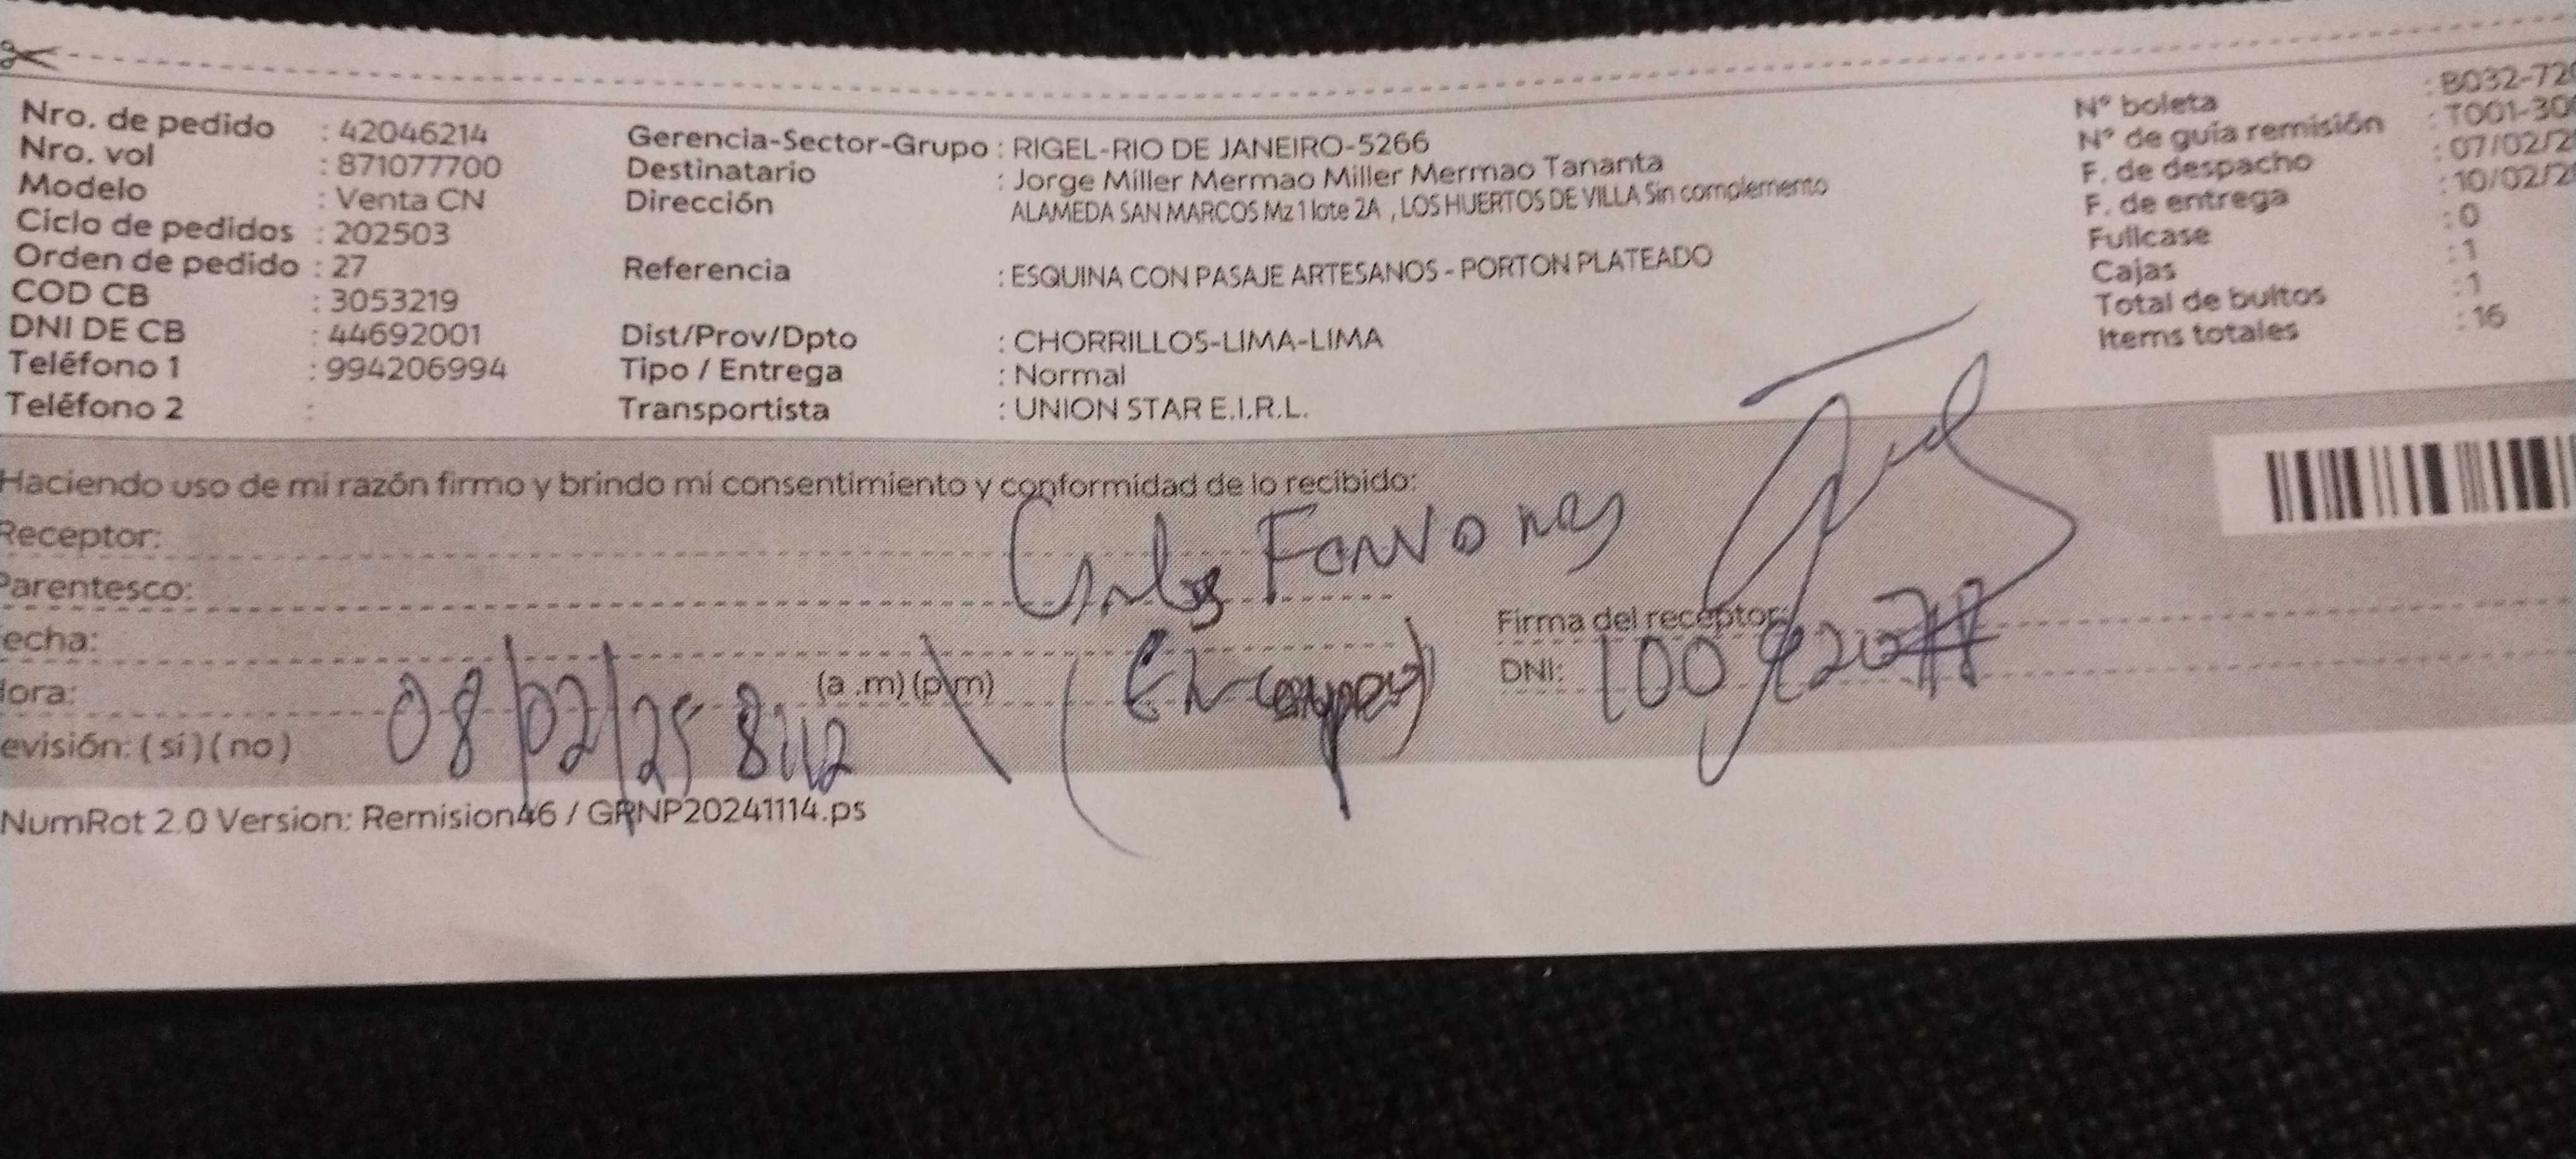 Nro. de pedido : 42046214
Nro. vol : 871077700
Modelo : Venta CN
Ciclo de pedidos : 202503
Orden de pedido : 27
COD CB : 3053219
DNI DE CB : 44692001
Teléfono 1 : 994206994
Teléfono 2 :
Gerencia-Sector-Grupo : RIGEL-RIO DE JANEIRO-5266
Destinatario : Jorge Miller Mermao Miller Mermao Tananta
Dirección : ALAMEDA SAN MARCOS Mz 1 lote 2A , LOS HUERTOS DE VILLA Sin complemento
Referencia : ESQUINA CON PASAJE ARTESANOS - PORTON PLATEADO
Dist/Prov/Dpto : CHORRILLOS-LIMA-LIMA
Tipo / Entrega : Normal
Transportista : UNION STAR E.I.R.L.
N° boleta : B032-72
N° de guía remisión : T001-30
F. de despacho : 07/02/2
F. de entrega : 10/02/2
Fullcase : 0
Cajas : 1
Total de bultos : 1
Items totales : 16
Haciendo uso de mi razón firmo y brindo mi consentimiento y conformidad de lo recibido:
Receptor: Carlos
Parentesco:
echa: 08/02/25
ora: 8:12 (a .m) (p.m)
evisión: ( sí ) ( no )
Firma del receptor:
DNI:
NumRot 2.0 Version: Remision46 / GRNP20241114.ps